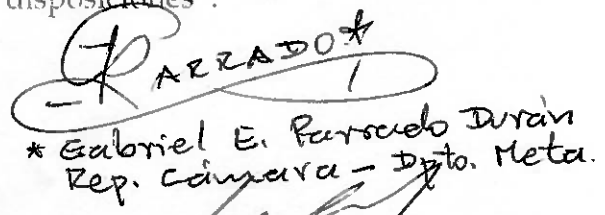 disposiciones".
PARRADO*
* Gabriel E. Parrado Durán
Rep. Cámara - Dpto. Meta.